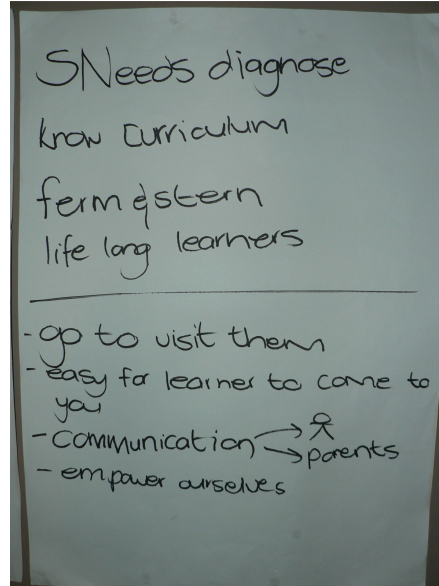 SNeeds diagnose
know curriculum
ferm & stern
life long learners
- go to visit them
- easy for learner to come to
you
- communication →
→ parents
- empower ourselves